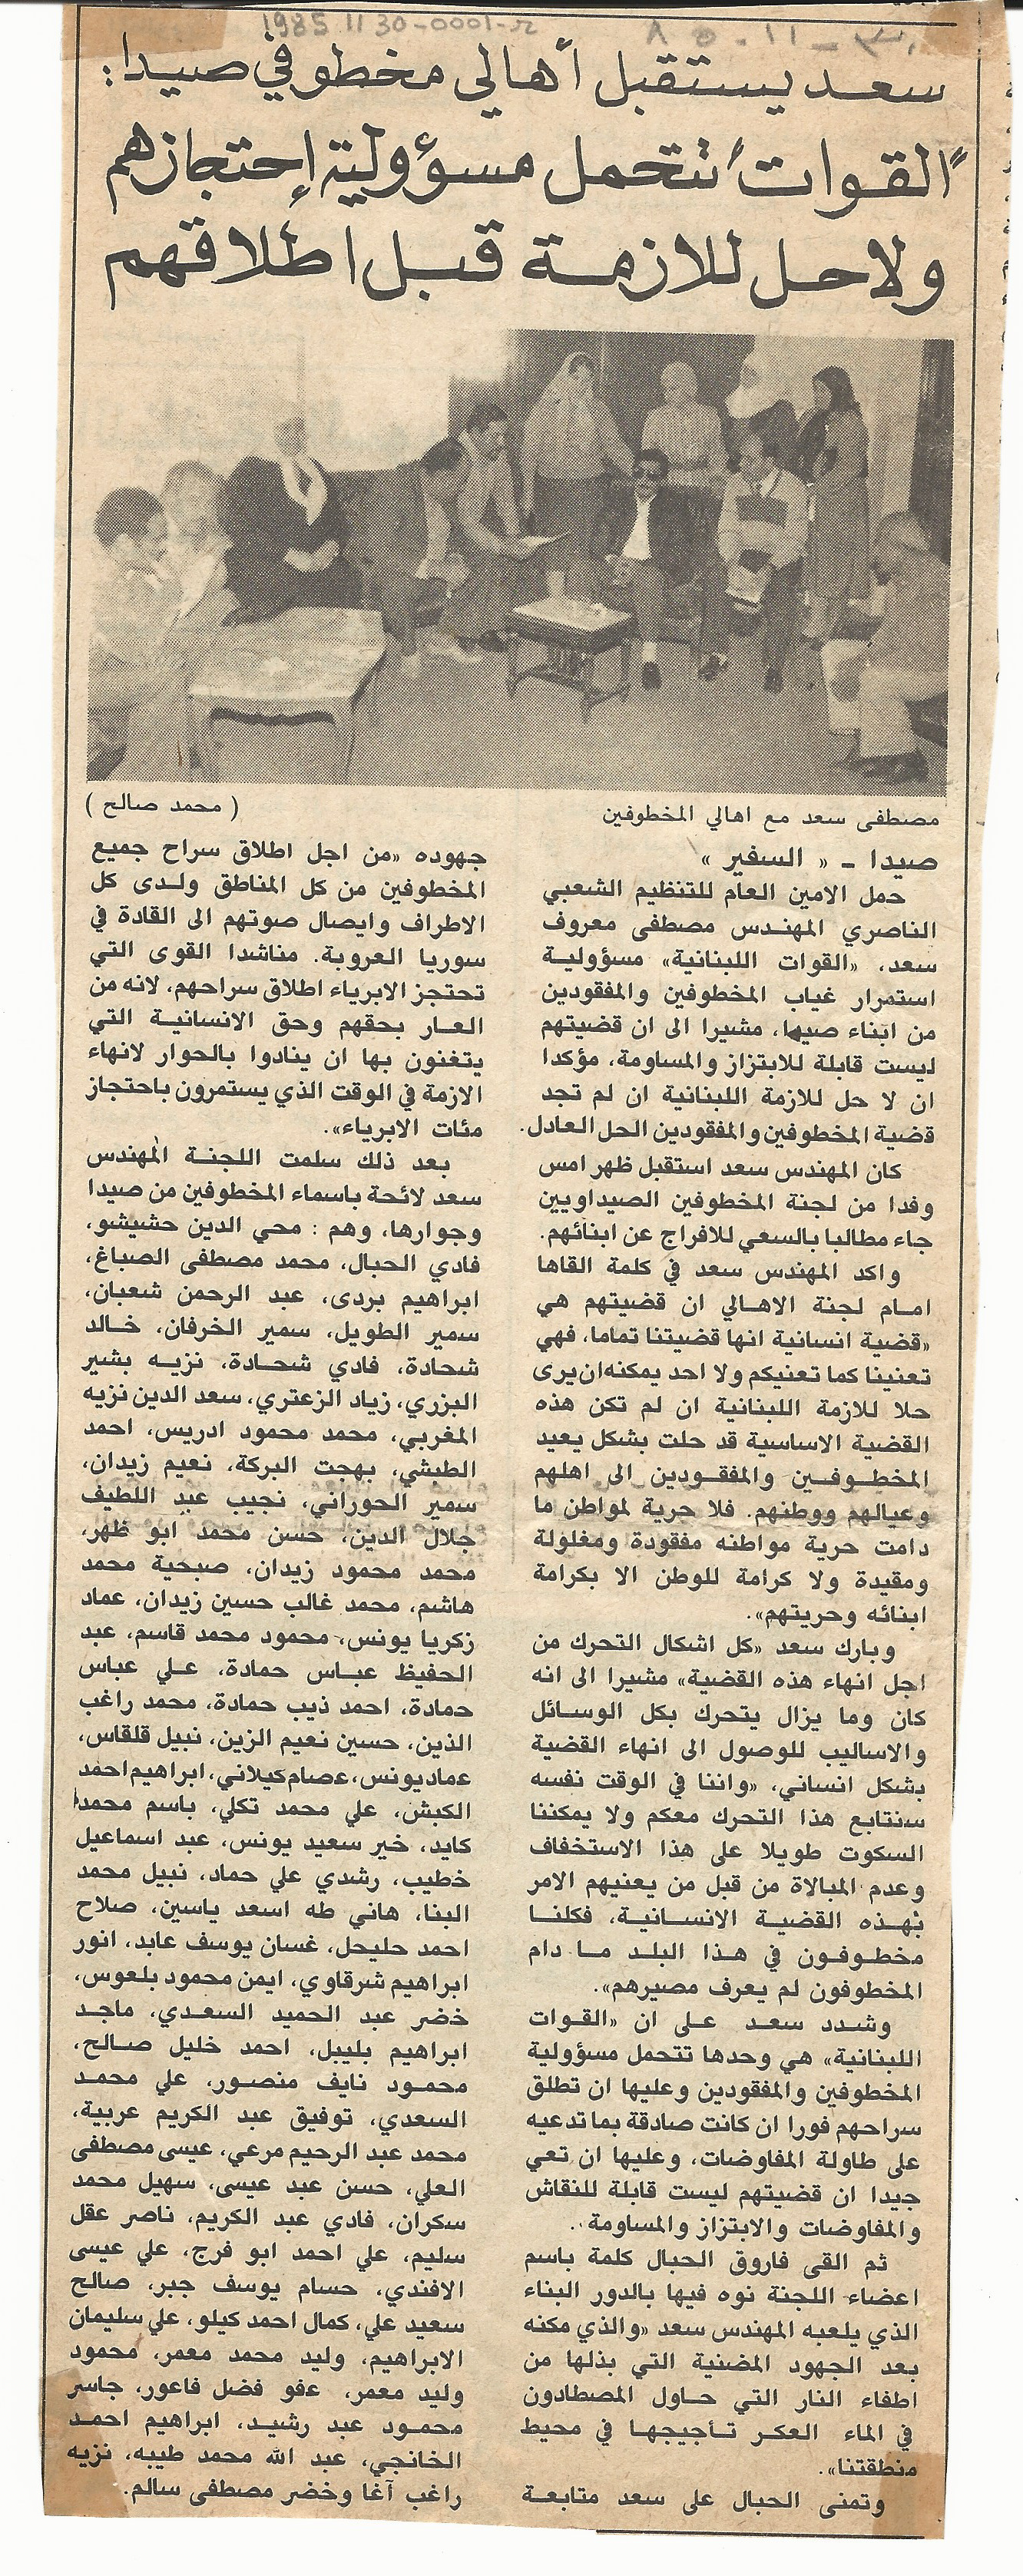 1985 11 30-0001-
سعد يستقبل أهالي مخطوفي صيدا:
"القوات" تتحمل مسؤولية إحتجازهم
ولا حل للازمة قبل اطلاقهم
مصطفى سعد مع اهالي المخطوفين
( محمد صالح )
صيدا ـ « السفير »
حمل الامين العام للتنظيم الشعبي
الناصري المهندس مصطفى معروف
سعد، «القوات اللبنانية» مسؤولية
استمرار غياب المخطوفين والمفقودين
من ابناء صيدا، مشيرا الى ان قضيتهم
ليست قابلة للابتزاز والمساومة، مؤكدا
ان لا حل للازمة اللبنانية ان لم تجد
قضية المخطوفين والمفقودين الحل العادل.
كان المهندس سعد استقبل ظهر امس
وفدا من لجنة المخطوفين الصيداويين
جاء مطالبا بالسعي للافراج عن ابنائهم.
واكد المهندس سعد في كلمة القاها
امام لجنة الاهالي ان قضيتهم هي
«قضية انسانية انها قضيتنا تماما، فهي
تعنينا كما تعنيكم ولا احد يمكنه ان يرى
حلا للازمة اللبنانية ان لم تكن هذه
القضية الاساسية قد حلت بشكل يعيد
المخطوفين والمفقودين الى اهلهم
وعيالهم ووطنهم. فلا حرية لمواطن ما
دامت حرية مواطنه مفقودة ومغلولة
ومقيدة ولا كرامة للوطن الا بكرامة
ابنائه وحريتهم».
وبارك سعد «كل اشكال التحرك من
اجل انهاء هذه القضية» مشيرا الى انه
كان وما يزال يتحرك بكل الوسائل
والاساليب للوصول الى انهاء القضية
بشكل انساني، «واننا في الوقت نفسه
سنتابع هذا التحرك معكم ولا يمكننا
السكوت طويلا على هذا الاستخفاف
وعدم المبالاة من قبل من يعنيهم الامر
بهذه القضية الانسانية، فكلنا
مخطوفون في هذا البلد ما دام
المخطوفون لم يعرف مصيرهم».
وشدد سعد على ان «القوات
اللبنانية» هي وحدها تتحمل مسؤولية
المخطوفين والمفقودين وعليها ان تطلق
سراحهم فورا ان كانت صادقة بما تدعيه
على طاولة المفاوضات، وعليها ان تعي
جيدا ان قضيتهم ليست قابلة للنقاش
والمفاوضات والابتزاز والمساومة.
ثم القى فاروق الحبال كلمة باسم
اعضاء اللجنة نوه فيها بالدور البناء
الذي يلعبه المهندس سعد «والذي مكنه
بعد الجهود المضنية التي بذلها من
اطفاء النار التي حاول المصطادون
في الماء العكر تأجيجها في محيط
منطقتنا».
وتمنى الحبال على سعد متابعة
جهوده «من اجل اطلاق سراح جميع
المخطوفين من كل المناطق ولدى كل
الاطراف وايصال صوتهم الى القادة في
سوريا العروبة. مناشدا القوى التي
تحتجز الابرياء اطلاق سراحهم، لانه من
العار بحقهم وحق الانسانية التي
يتغنون بها ان ينادوا بالحوار لانهاء
الازمة في الوقت الذي يستمرون باحتجاز
مئات الابرياء».
بعد ذلك سلمت اللجنة المهندس
سعد لائحة باسماء المخطوفين من صيدا
وجوارها، وهم : محي الدين حشيشو،
فادي الحبال، محمد مصطفى الصباغ،
ابراهيم بردى، عبد الرحمن شعبان،
سمير الطويل، سمير الخرفان، خالد
شحادة، فادي شحادة، نزيه بشير
البزري، زياد الزعتري، سعد الدين نزيه
المغربي، محمد محمود ادريس، احمد
الطبشي، بهجت البركة، نعيم زيدان،
سمير الحوراني، نجيب عبد اللطيف
جلال الدين، حسن محمد ابو ظهر،
محمد محمود زيدان، صبحية محمد
هاشم، محمد غالب حسين زيدان، عماد
زكريا يونس، محمود محمد قاسم، عبد
الحفيظ عباس حمادة، علي عباس
حمادة، احمد ذيب حمادة، محمد راغب
الذين، حسين نعيم الزين، نبيل قلقاس،
عماد يونس، عصام كيلاني، ابراهيم احمد
الكبش، علي محمد تكلي، باسم محمد
كايد، خير سعيد يونس، عبد اسماعيل
خطيب، رشدي علي حماد، نبيل محمد
البنا، هاني طه اسعد ياسين، صلاح
احمد حليحل، غسان يوسف عابد، انور
ابراهيم شرقاوي، ايمن محمود بلعوس،
خضر عبد الحميد السعدي، ماجد
ابراهيم بليبل، احمد خليل صالح،
محمود نايف منصور، علي محمد
السعدي، توفيق عبد الكريم عربية،
محمد عبد الرحيم مرعي، عيسى مصطفى
العلي، حسن عبد عيسى، سهيل محمد
سكران، فادي عبد الكريم، ناصر عقل
سليم، علي احمد ابو فرج، علي عيسى
الافندي، حسام يوسف جبر، صالح
سعيد علي، كمال احمد كيلو، علي سليمان
الابراهيم، وليد محمد معمر، محمود
وليد معمر، عفو فضل فاعور، جاسر
محمود عبد رشيد، ابراهيم احمد
الخانجي، عبد الله محمد طيبه، نزيه
راغب آغا وخضر مصطفى سالم.